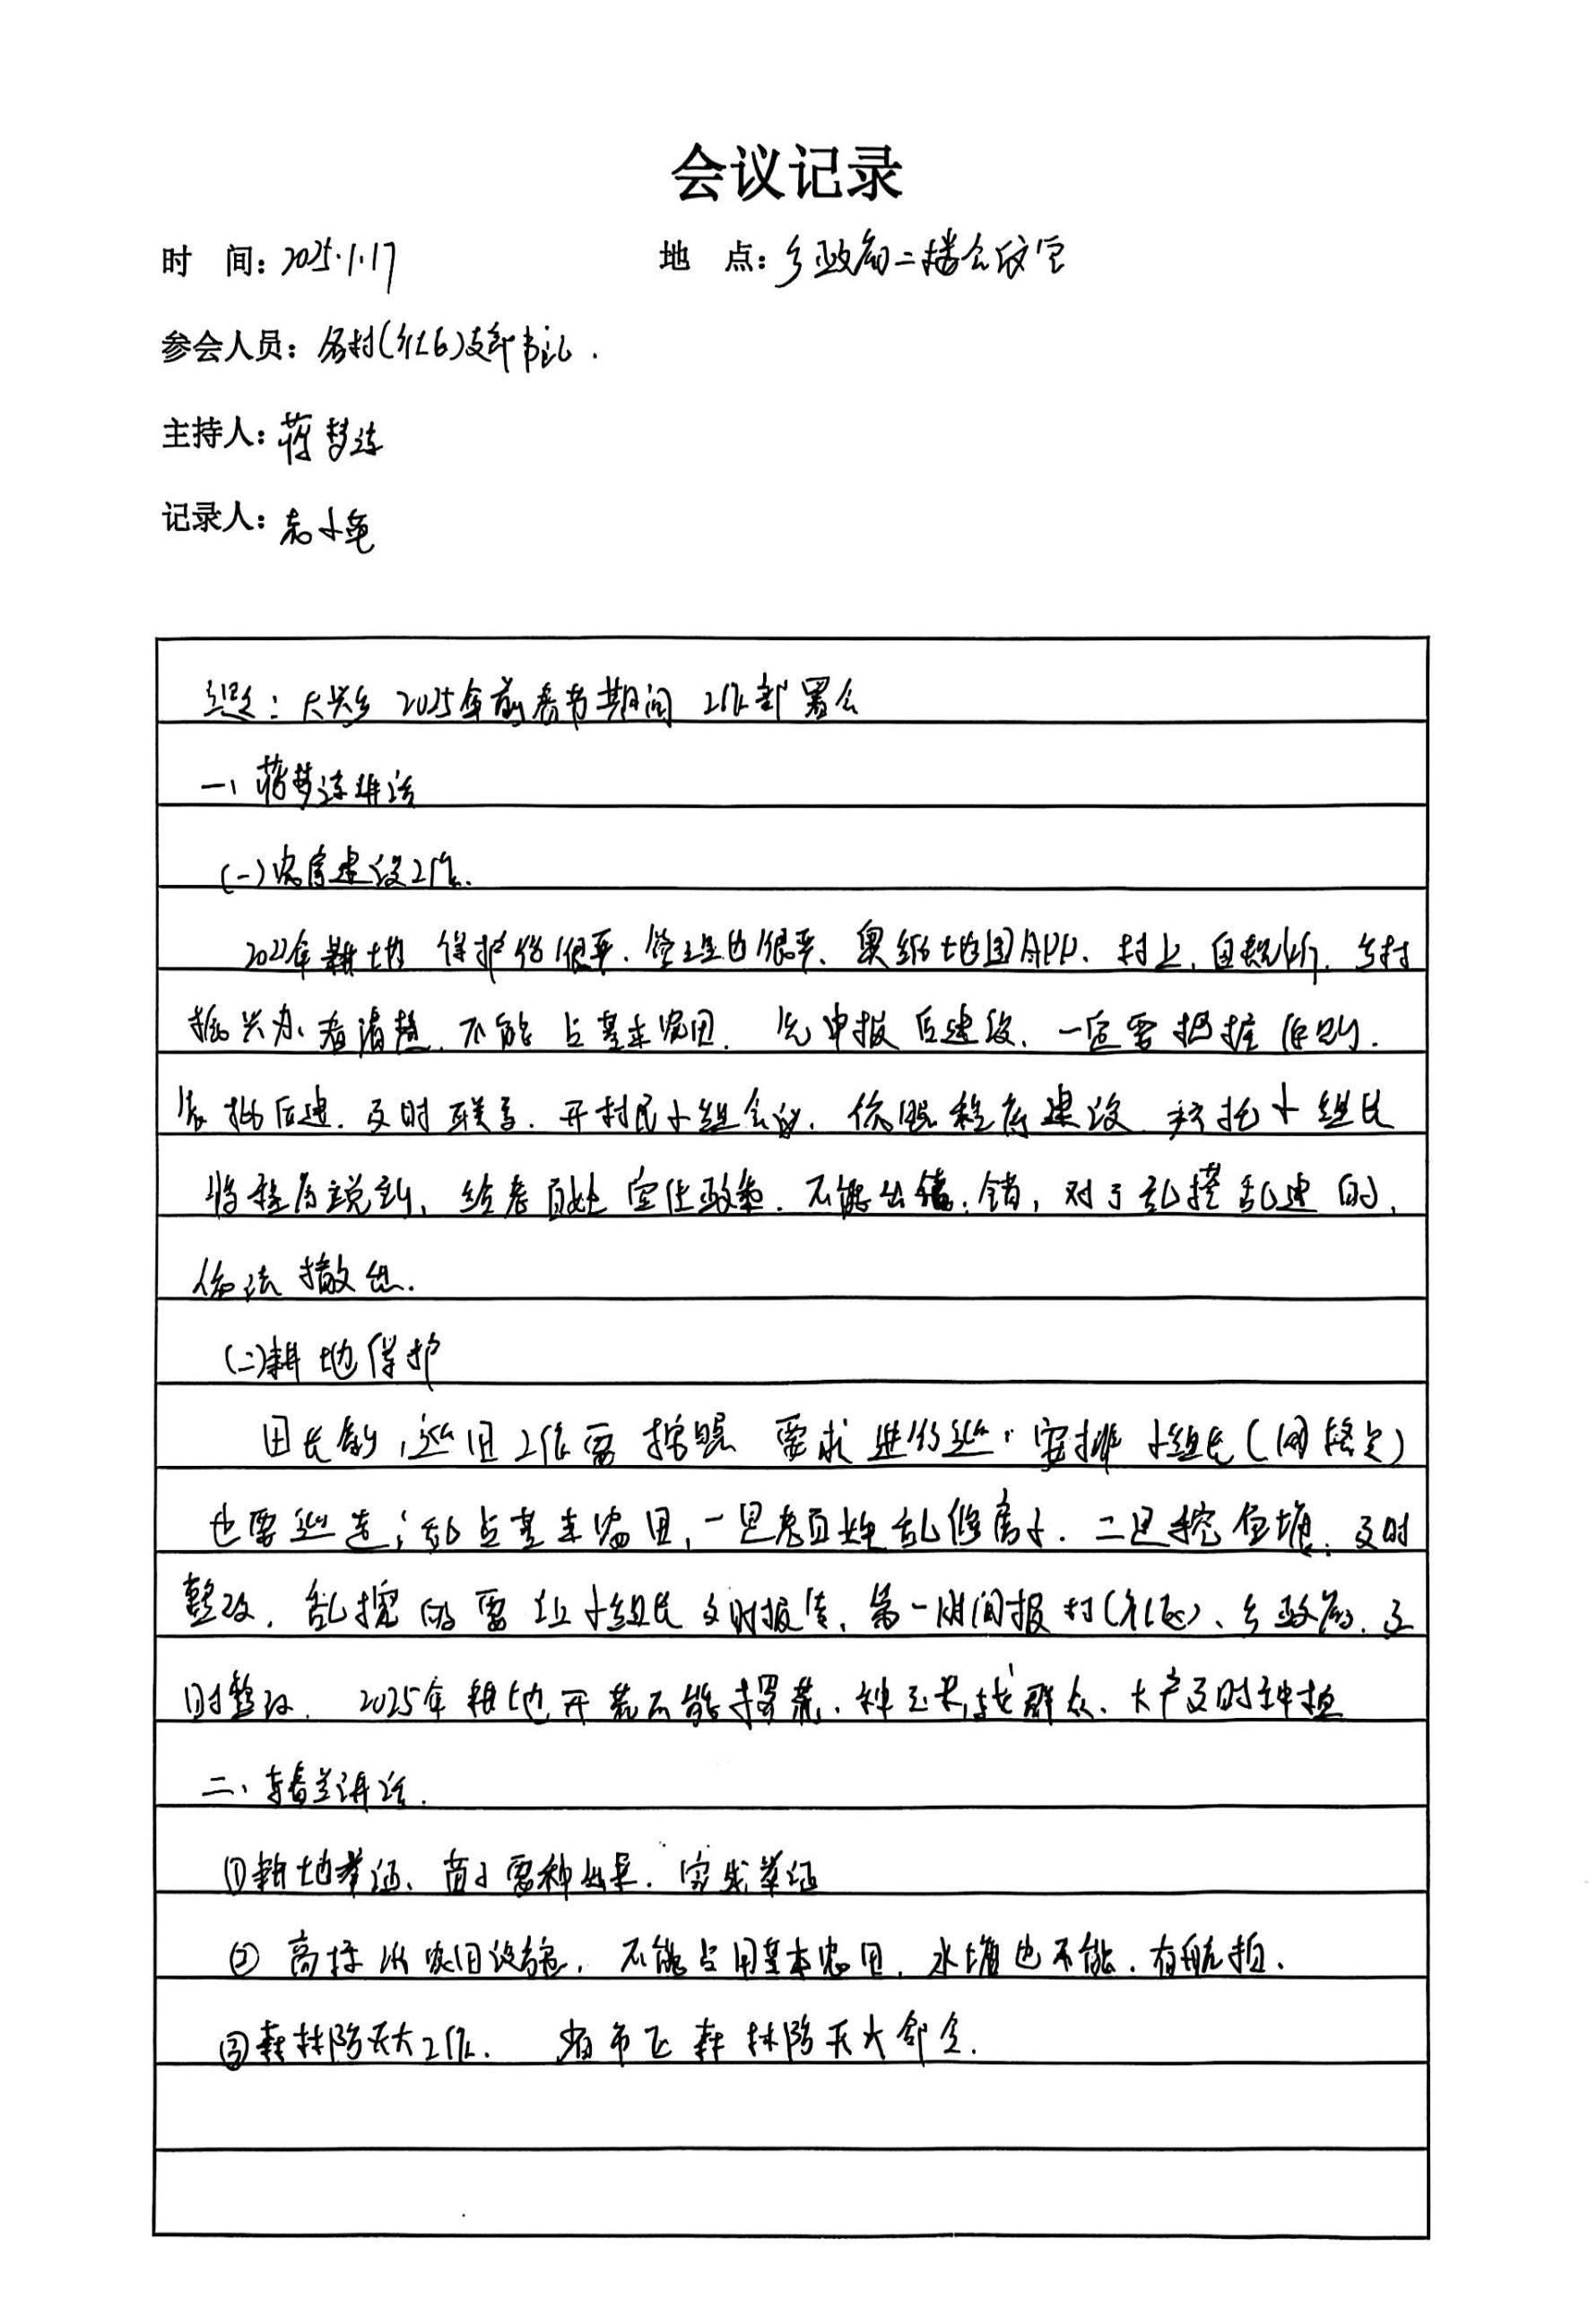 会议记录
时 间：2025.1.17 地 点：乡政府二楼会议室
参会人员：各村(社区)支部书记.
主持人：蒋梦连
记录人：
主题：大兴乡2025年前春节期间工作部署会
一、蒋梦连讲话
(一)农房建设工作.
2022年耕地保护很严、管理也很严、奥维地图APP、村上、自规所、乡村
振兴办看清楚、不能占基本农田. 先申报后建设、一定要把握原则.
先批后建. 及时联系. 开村民小组会议、依照程序建设. 小组长
将程序说到, 给老百姓宣传政策. 不能出错, 对于乱搭乱建的,
依法撤处.
(二)耕地保护
田长制，巡田工作要按照要求进行巡；安排小组长(网格员)
也要巡查；乱占基本农田, 一是老百姓乱修房子. 二是挖鱼塘. 及时
整改. 乱挖的要让小组长及时报告, 第一时间报村(社区)、乡政府. 及
时整改. 2025年耕地开荒不能撂荒. 种玉米找群众、大户及时种植
二、春兰讲话.
①耕地举证、苗子要种出来. 完成举证
② 高标准农田设施. 不能占用基本农田. 水塘也不能. 有航拍.
③森林防灭火工作. 省市区森林防灭火部会.